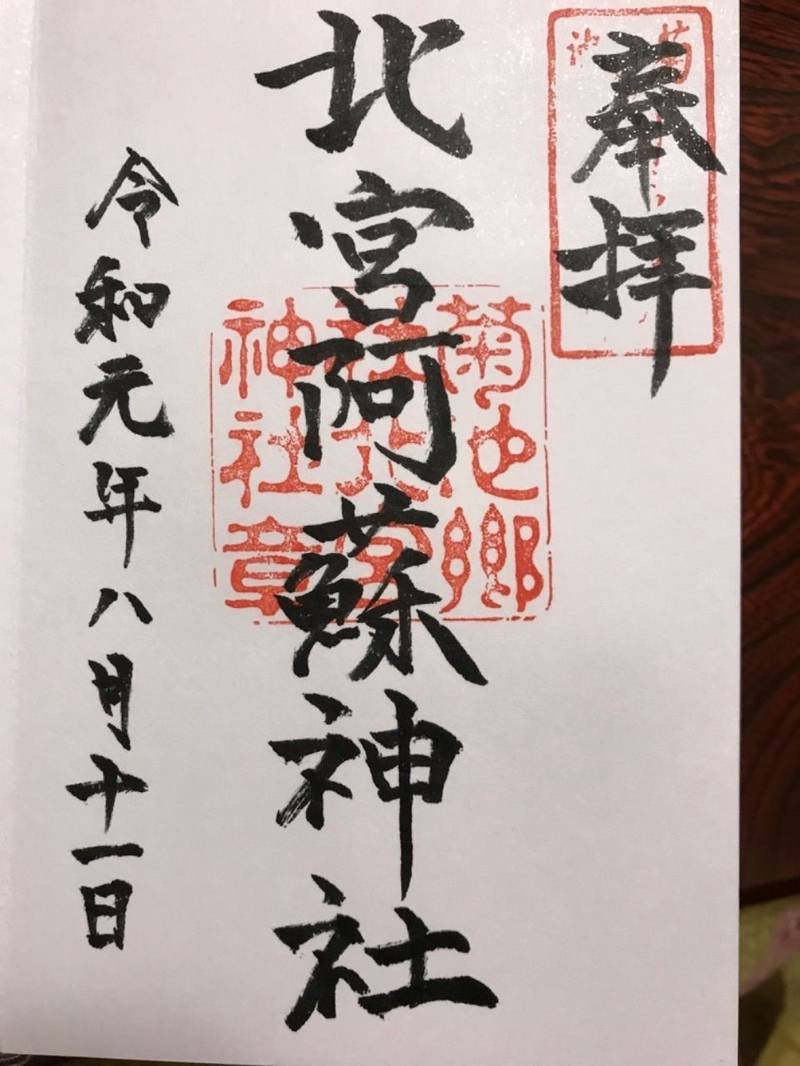 奉拝
北宮阿蘇神社
菊池郷
北宮
神社章
令和元年八月十一日